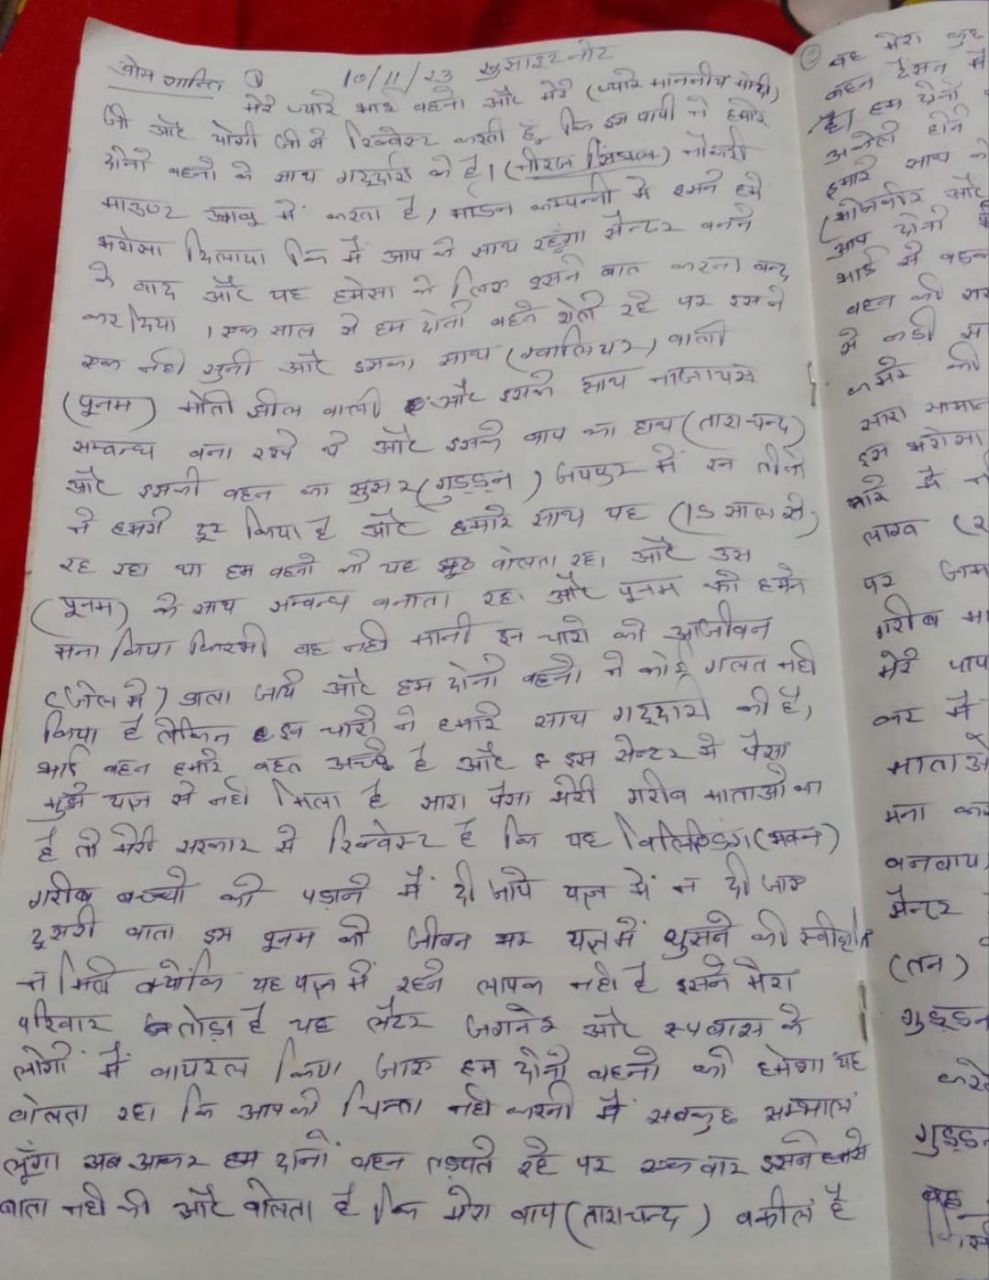 ओम शान्ति ① 10/11/23 सुसाइट नोट
मेरे प्यारे भाई बहनो और मेरे (प्यारे माननीय मोदी)
जी और योगी जी से रिक्वेस्ट करती हूँ कि इस पापी ने हमारे
दोनो बहनो के साथ गद्दारी की है। (नीरज सिंघल) नौकरी
माउण्ट आबू में करता है, मार्डन कम्पनी में इसने हमे
भरोसा दिलाया कि मैं आप के साथ रहूंगा सेन्टर बनने
के बाद और यह हमेसा के लिए इसने बात करना बन्द
कर दिया । एक साल से हम दोनो बहने रोती रहे पर इसने
एक नही सुनी और इसका साथ (ग्वालियर) वाली
(पूनम) मोती झील वाली और इसके साथ नाजायस
सम्बन्ध बना रखे थे और इसके बाप का हाथ (ताराचन्द)
और इसकी बहन का सुसर (गुड्डन) जयपुर में इन तीनो
ने हमसे दूर किया है और हमारे साथ यह (15 साल से)
रह रहा था हम बहनो को यह झूठ बोलता रहा और उस
(पूनम) के साथ सम्बन्ध बनाता रहा और पूनम को हमने
मना किया फिरभी वह नही मानी इन चारो को आजीवन
(जेल में) डाला जाये और हम दोनो बहनो ने कोई गलत नही
किया है लेकिन इन चारो ने हमारे साथ गद्दारी की है,
भाई बहन हमारे बहुत अच्छे है और इस सेन्टर में पैसा
मुझे यज्ञ से नही मिला है सारा पैसा मेरी गरीब माताओ का
है तो मेरी सरकार से रिक्वेस्ट है कि यह बिल्डिंग (भवन)
गरीब बच्चो को पड़ाने में दी जाये यज्ञ में न दी जाए
दूसरी बाता इस पूनम को जीवन भर यज्ञ में घुसने की स्वीकृति
न मिले क्योंकि यह यज्ञ में रहने लायक नही है इसने मेरा
परिवार तोड़ा है यह लैटर जगनेर और रुपबास के
लोगों में वायरल किया जाए हम दोनो बहनो को हमेशा यह
बोलता रहा कि आपको चिन्ता नही करनी में सबकुछ सम्भाल
लूँगा अब आकर हम दोनों बहन तड़पते रहे पर एक बार इसने हमसे
बाता नही की और बोलता है कि मेरा बाप (ताराचन्द) वकील है
② वह मेरा कुछ
बहन टेंसन में
है। हम दोनो
अकेली होने
हमारे साथ
आप दोनो
भाई से
बहन की
से कडी
कमरे की
सारा सामान
इस भरोसा
बारे में
लाख
पर
गरीब
मेरे पापा
कर में
माताओ
मना कर
बनवाया
सेन्टर
(तन)
गुड्डन
करे
गुड्डन
वह